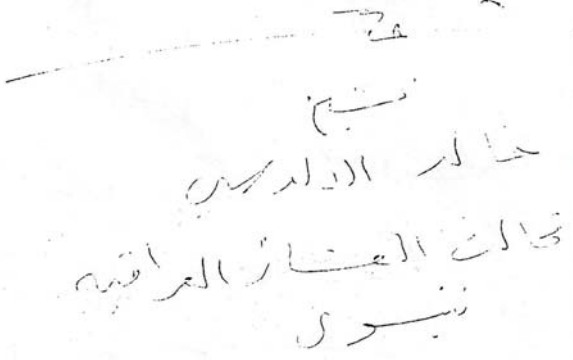 خالد الادريسي
تحالف العشائر العراقيه
نينوى